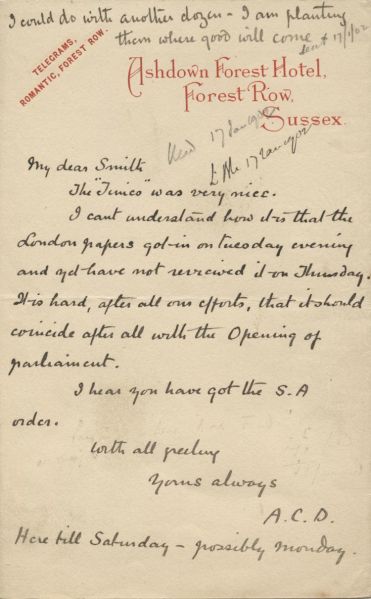 I could do with another dozen – I am planting
them where good will come
sent 17/1/02
TELEGRAMS,
ROMANTIC, FOREST ROW.
Ashdown Forest Hotel,
Forest Row,
Sussex.
17 Jan 1902
17 Jan 1902
My dear Smith
The "Times" was very nice.
I cant understand how it is that the
London papers got it on Tuesday evening
and yet have not reviewed it on Thursday.
It is hard, after all our efforts, that it should
coincide after all with the Opening of
parliament.
I hear you have got the S.A
order.
With all
Yours always
A.C.D.
Here till Saturday – possibly Monday.